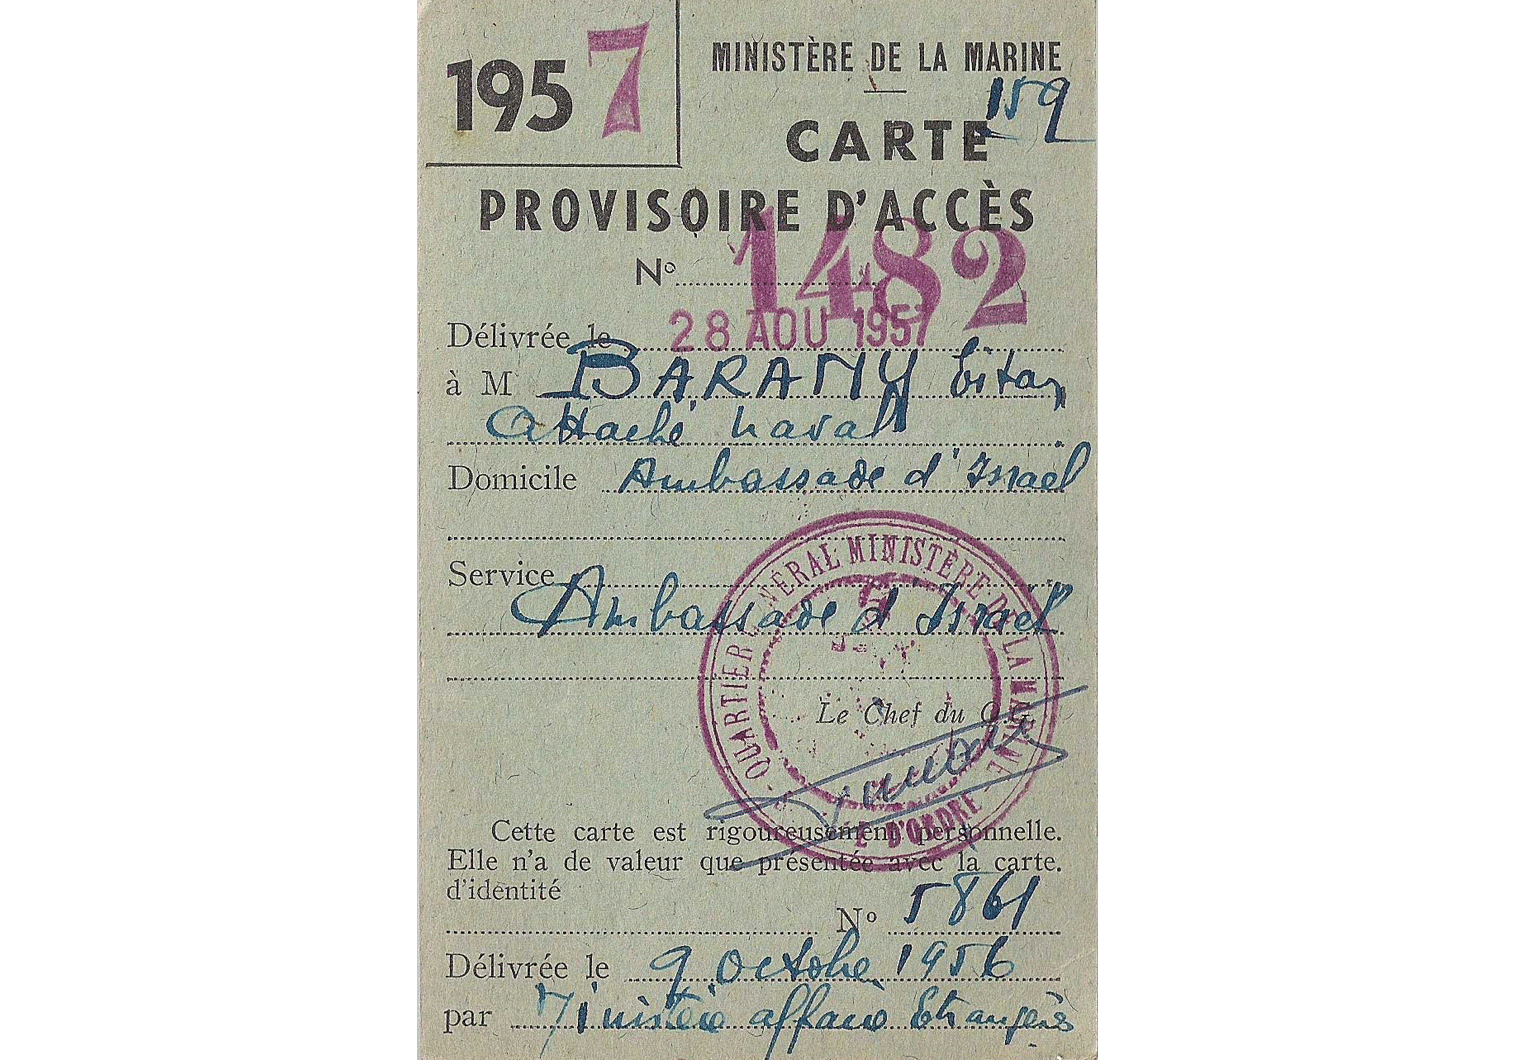 1957
MINISTÈRE DE LA MARINE
159
CARTE
PROVISOIRE D'ACCÈS
No 1482
Délivrée le 28 AOU 1957
à M BARANY Eitan
Attaché naval
Domicile Ambassade d'Israël
Service
Ambassade d'Israël
QUARTIER GÉNÉRAL MINISTÈRE DE LA MARINE
D'ORDRE
Le Chef du Q.G.
Cette carte est rigoureusement personnelle.
Elle n'a de valeur que présentée avec la carte.
d'identité
No 5861
Délivrée le 9 octobre 1956
par Ministère affaires Etrangères